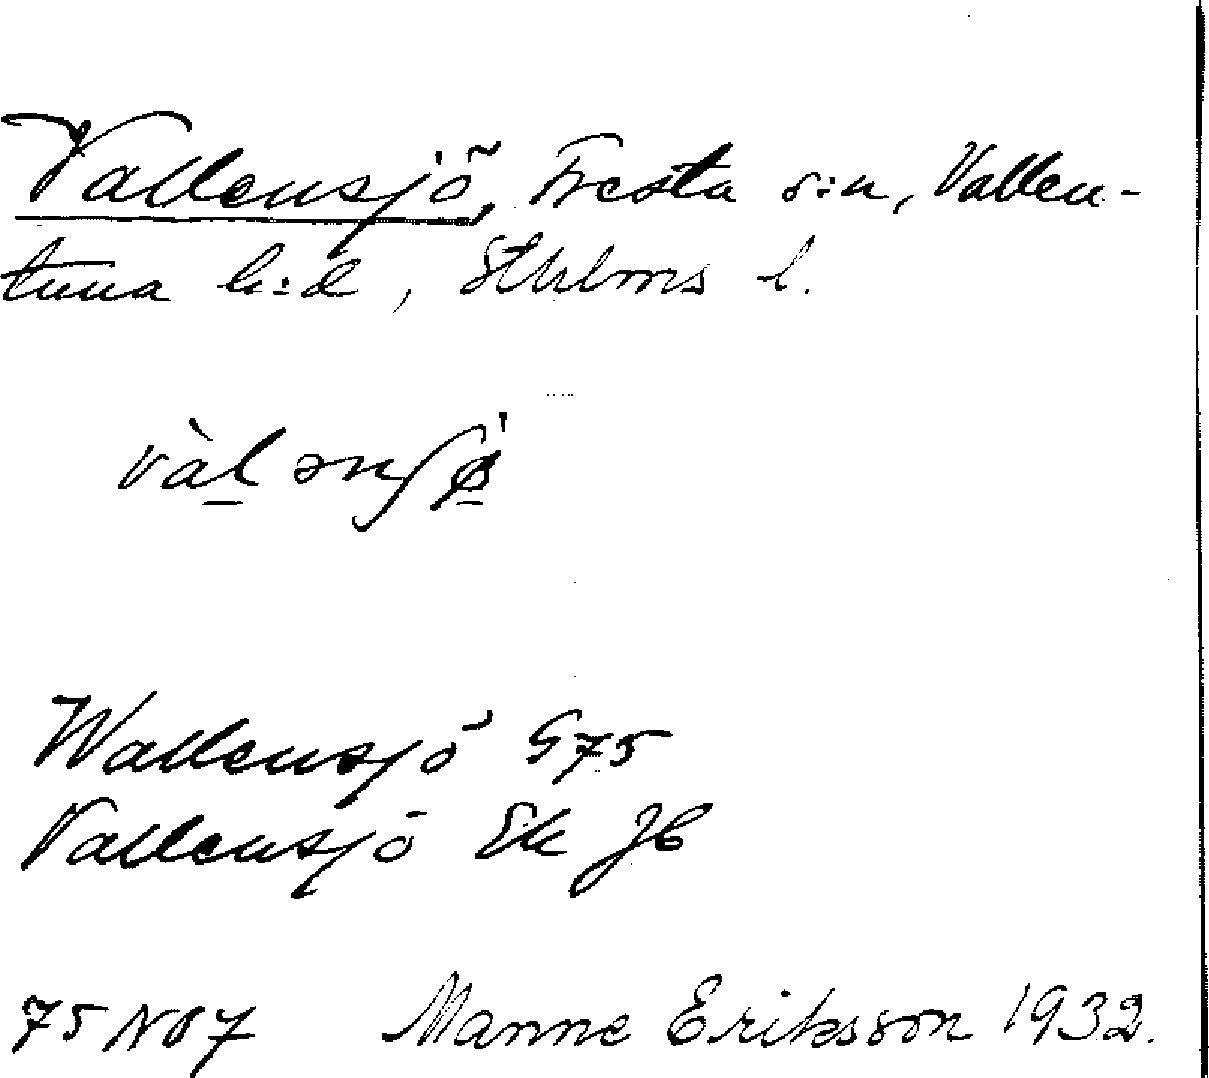 Vallensjö, Fresta s:n, Vallen-
tuna h:d, Sthlms l.
vàlənʃø̀
Wallensjö G75
Vallensjö Ek JB
75 NO 7 Manne Eriksson 1932.